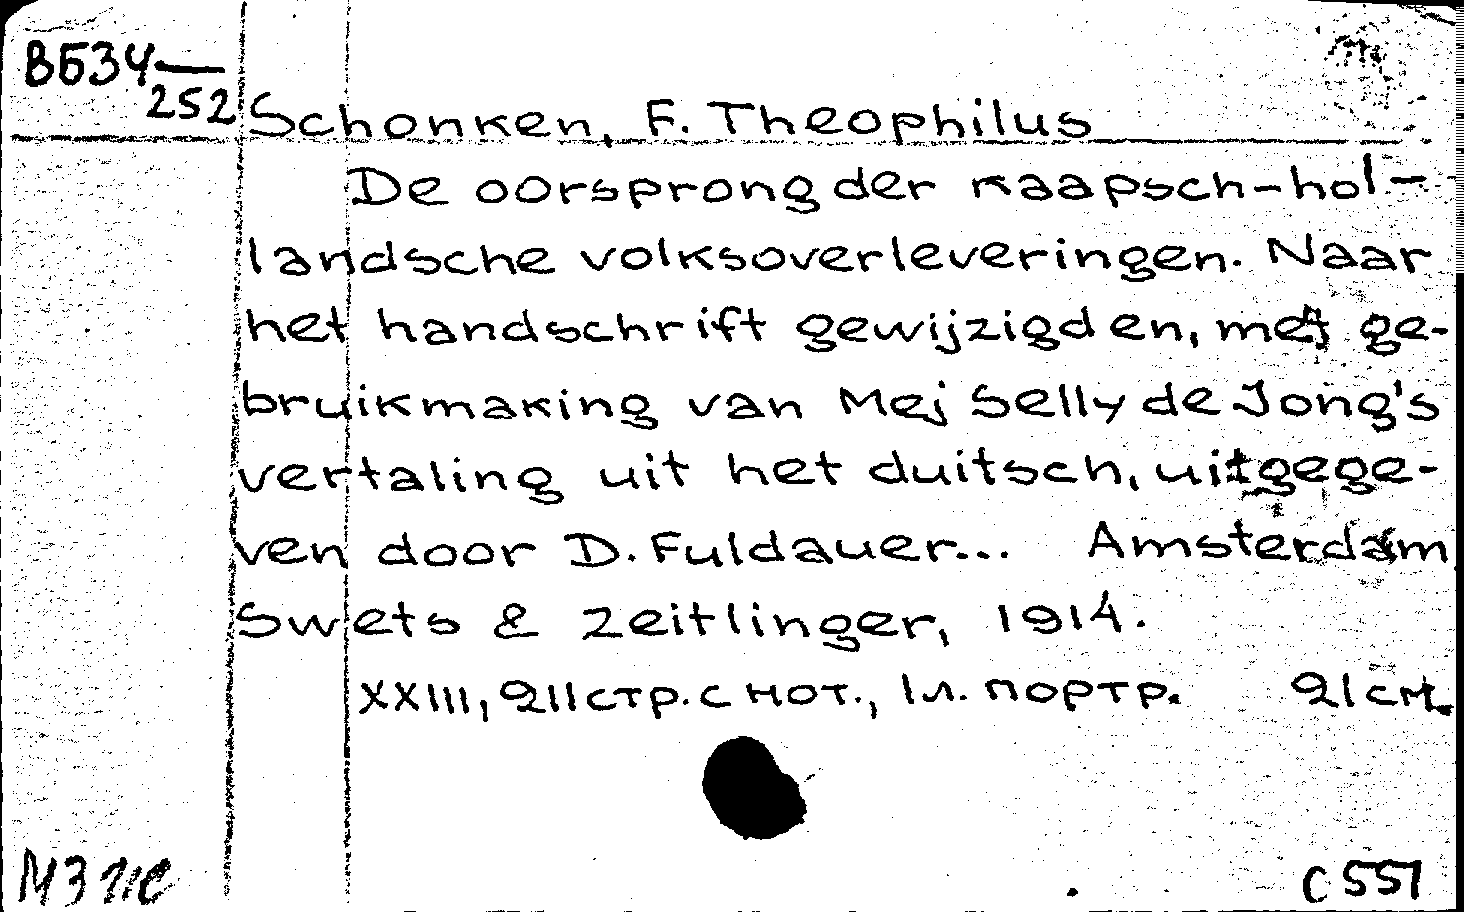 В534—
252
Schonken, F. Theophilus
De oorsprong der kaapsch-hol-
landsche volksoverleveringen. Naar
het handschrift gewijzigden, met ge-
bruikmaking van Mej Selly de Jong's
vertaling uit het duitsch, uitgege-
ven door D. Fuldauer... Amsterdam
Swets & Zeitlinger, 1914.
XXIII, 211 стр. с нот., 1 л. портр. 21 см.
С 551